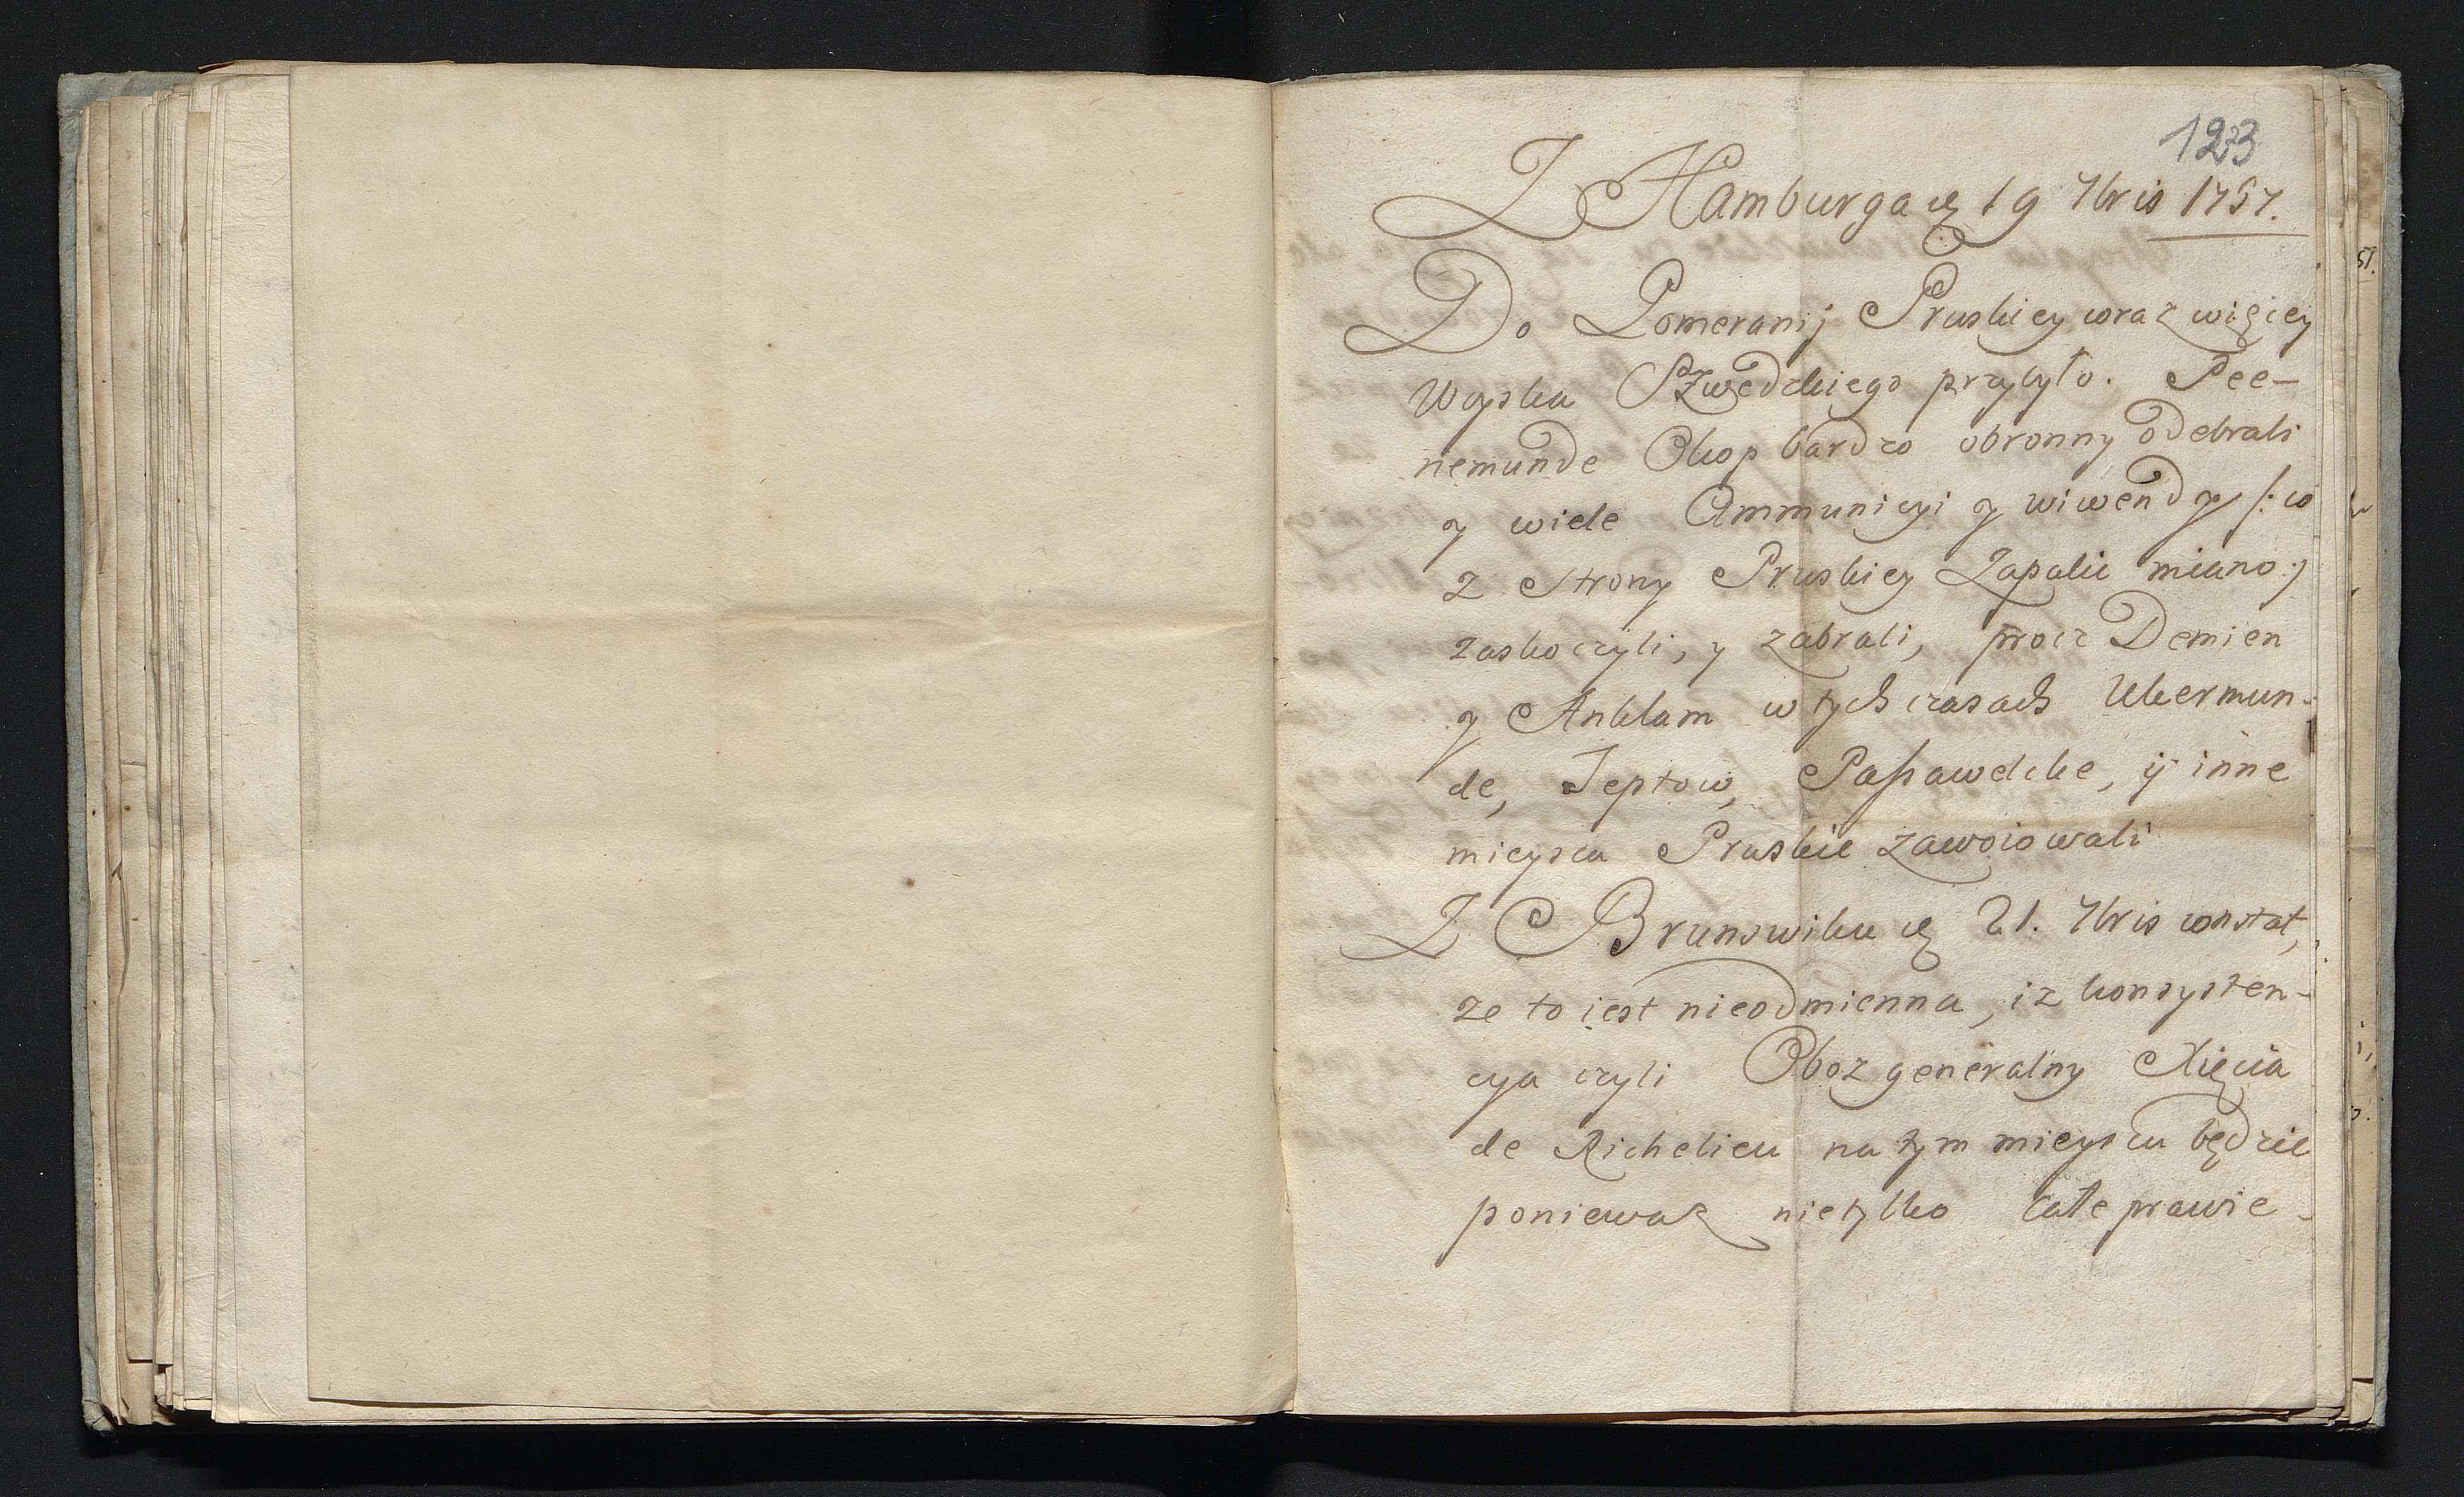 123
Z Hamburga d. 19 7bris 1757.
Do Pomeranij Pruskiey coraz więcey
Woyska Szwedzkiego przybyło. Pee-
nemunde Okop bardzo obronny odebrali
y wiele Ammunicyi y wiwendy /: co
z Strony Pruskiey Zapalić miano :/
zaskoczyli, y zabrali, procz Demien
y Anklam w tych czasach Ukermun-
de, Teptow, Passawelke, ÿ inne
mieysca Pruskie zawoiowali
Z Brunswiku d. 21. 7bris constat,
ze to iest nieodmienna, iz konsysten-
cya czyli Oboz generalny Xięcia
de Richelieu na tym mieyscu będzie
poniewaz nietylko całe prawie -